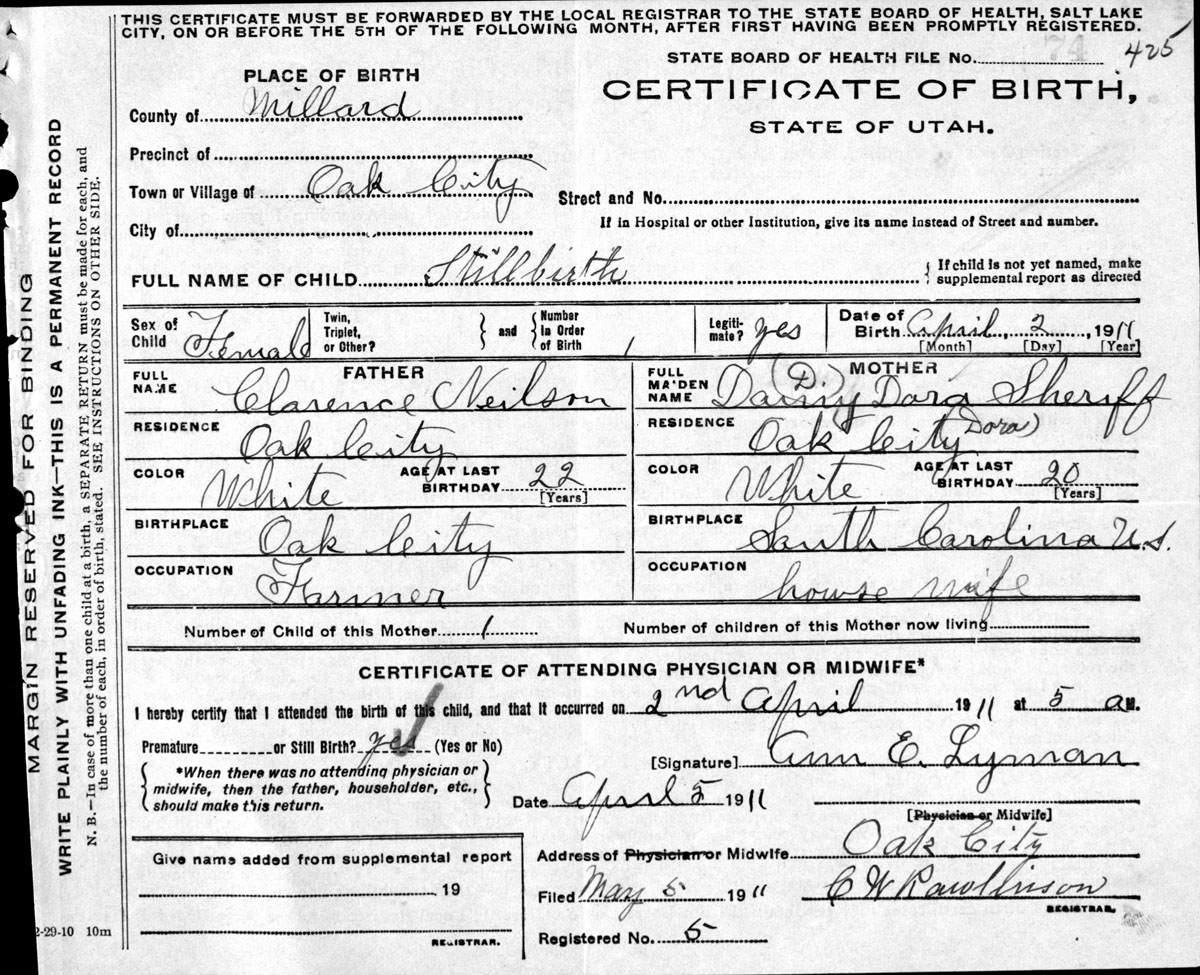 THIS CERTIFICATE MUST BE FORWARDED BY THE LOCAL REGISTRAR TO THE STATE BOARD OF HEALTH, SALT LAKE
CITY, ON OR BEFORE THE 5TH OF THE FOLLOWING MONTH, AFTER FIRST HAVING BEEN PROMPTLY REGISTERED.
MARGIN RESERVED FOR BINDING
WRITE PLAINLY WITH UNFADING INK—THIS IS A PERMANENT RECORD
N. B.—In case of more than one child at a birth, a SEPARATE RETURN must be made for each, and
the number of each, in order of birth, stated. SEE INSTRUCTIONS ON OTHER SIDE.
STATE BOARD OF HEALTH FILE No. 74 425
CERTIFICATE OF BIRTH,
STATE OF UTAH.
PLACE OF BIRTH
County of Millard
Precinct of
Town or Village of Oak City
City of
Street and No.
If in Hospital or other Institution, give its name instead of Street and number.
FULL NAME OF CHILD Stillbirth
{ If child is not yet named, make
supplemental report as directed
Sex of Child Female
Twin, Triplet, or Other? } and { Number in Order of Birth 1
Legiti-mate? yes
Date of Birth April 2 1911
[Month] [Day] [Year]
FATHER
FULL NAME Clarence Neilson
RESIDENCE Oak City
COLOR White AGE AT LAST BIRTHDAY 22
[Years]
BIRTHPLACE Oak City
OCCUPATION Farmer
MOTHER
FULL MAIDEN NAME Dainy (D.) Dora Sheriff
RESIDENCE Oak City Dora)
COLOR White AGE AT LAST BIRTHDAY 20
[Years]
BIRTHPLACE South Carolina U.S.
OCCUPATION house wife
Number of Child of this Mother 1
Number of children of this Mother now living
CERTIFICATE OF ATTENDING PHYSICIAN OR MIDWIFE*
I hereby certify that I attended the birth of this child, and that it occurred on 2nd April 1911 at 5 a M.
Premature or Still Birth? yes (Yes or No)
{ *When there was no attending physician or
midwife, then the father, householder, etc.,
should make this return. }
[Signature] Ann E. Lyman
Date April 5 1911
[Physician or Midwife]
Address of Physician or Midwife Oak City
Filed May 5 1911 C W Rawlinson
REGISTRAR.
Registered No. 5
Give name added from supplemental report
19
REGISTRAR.
2-29-10 10m